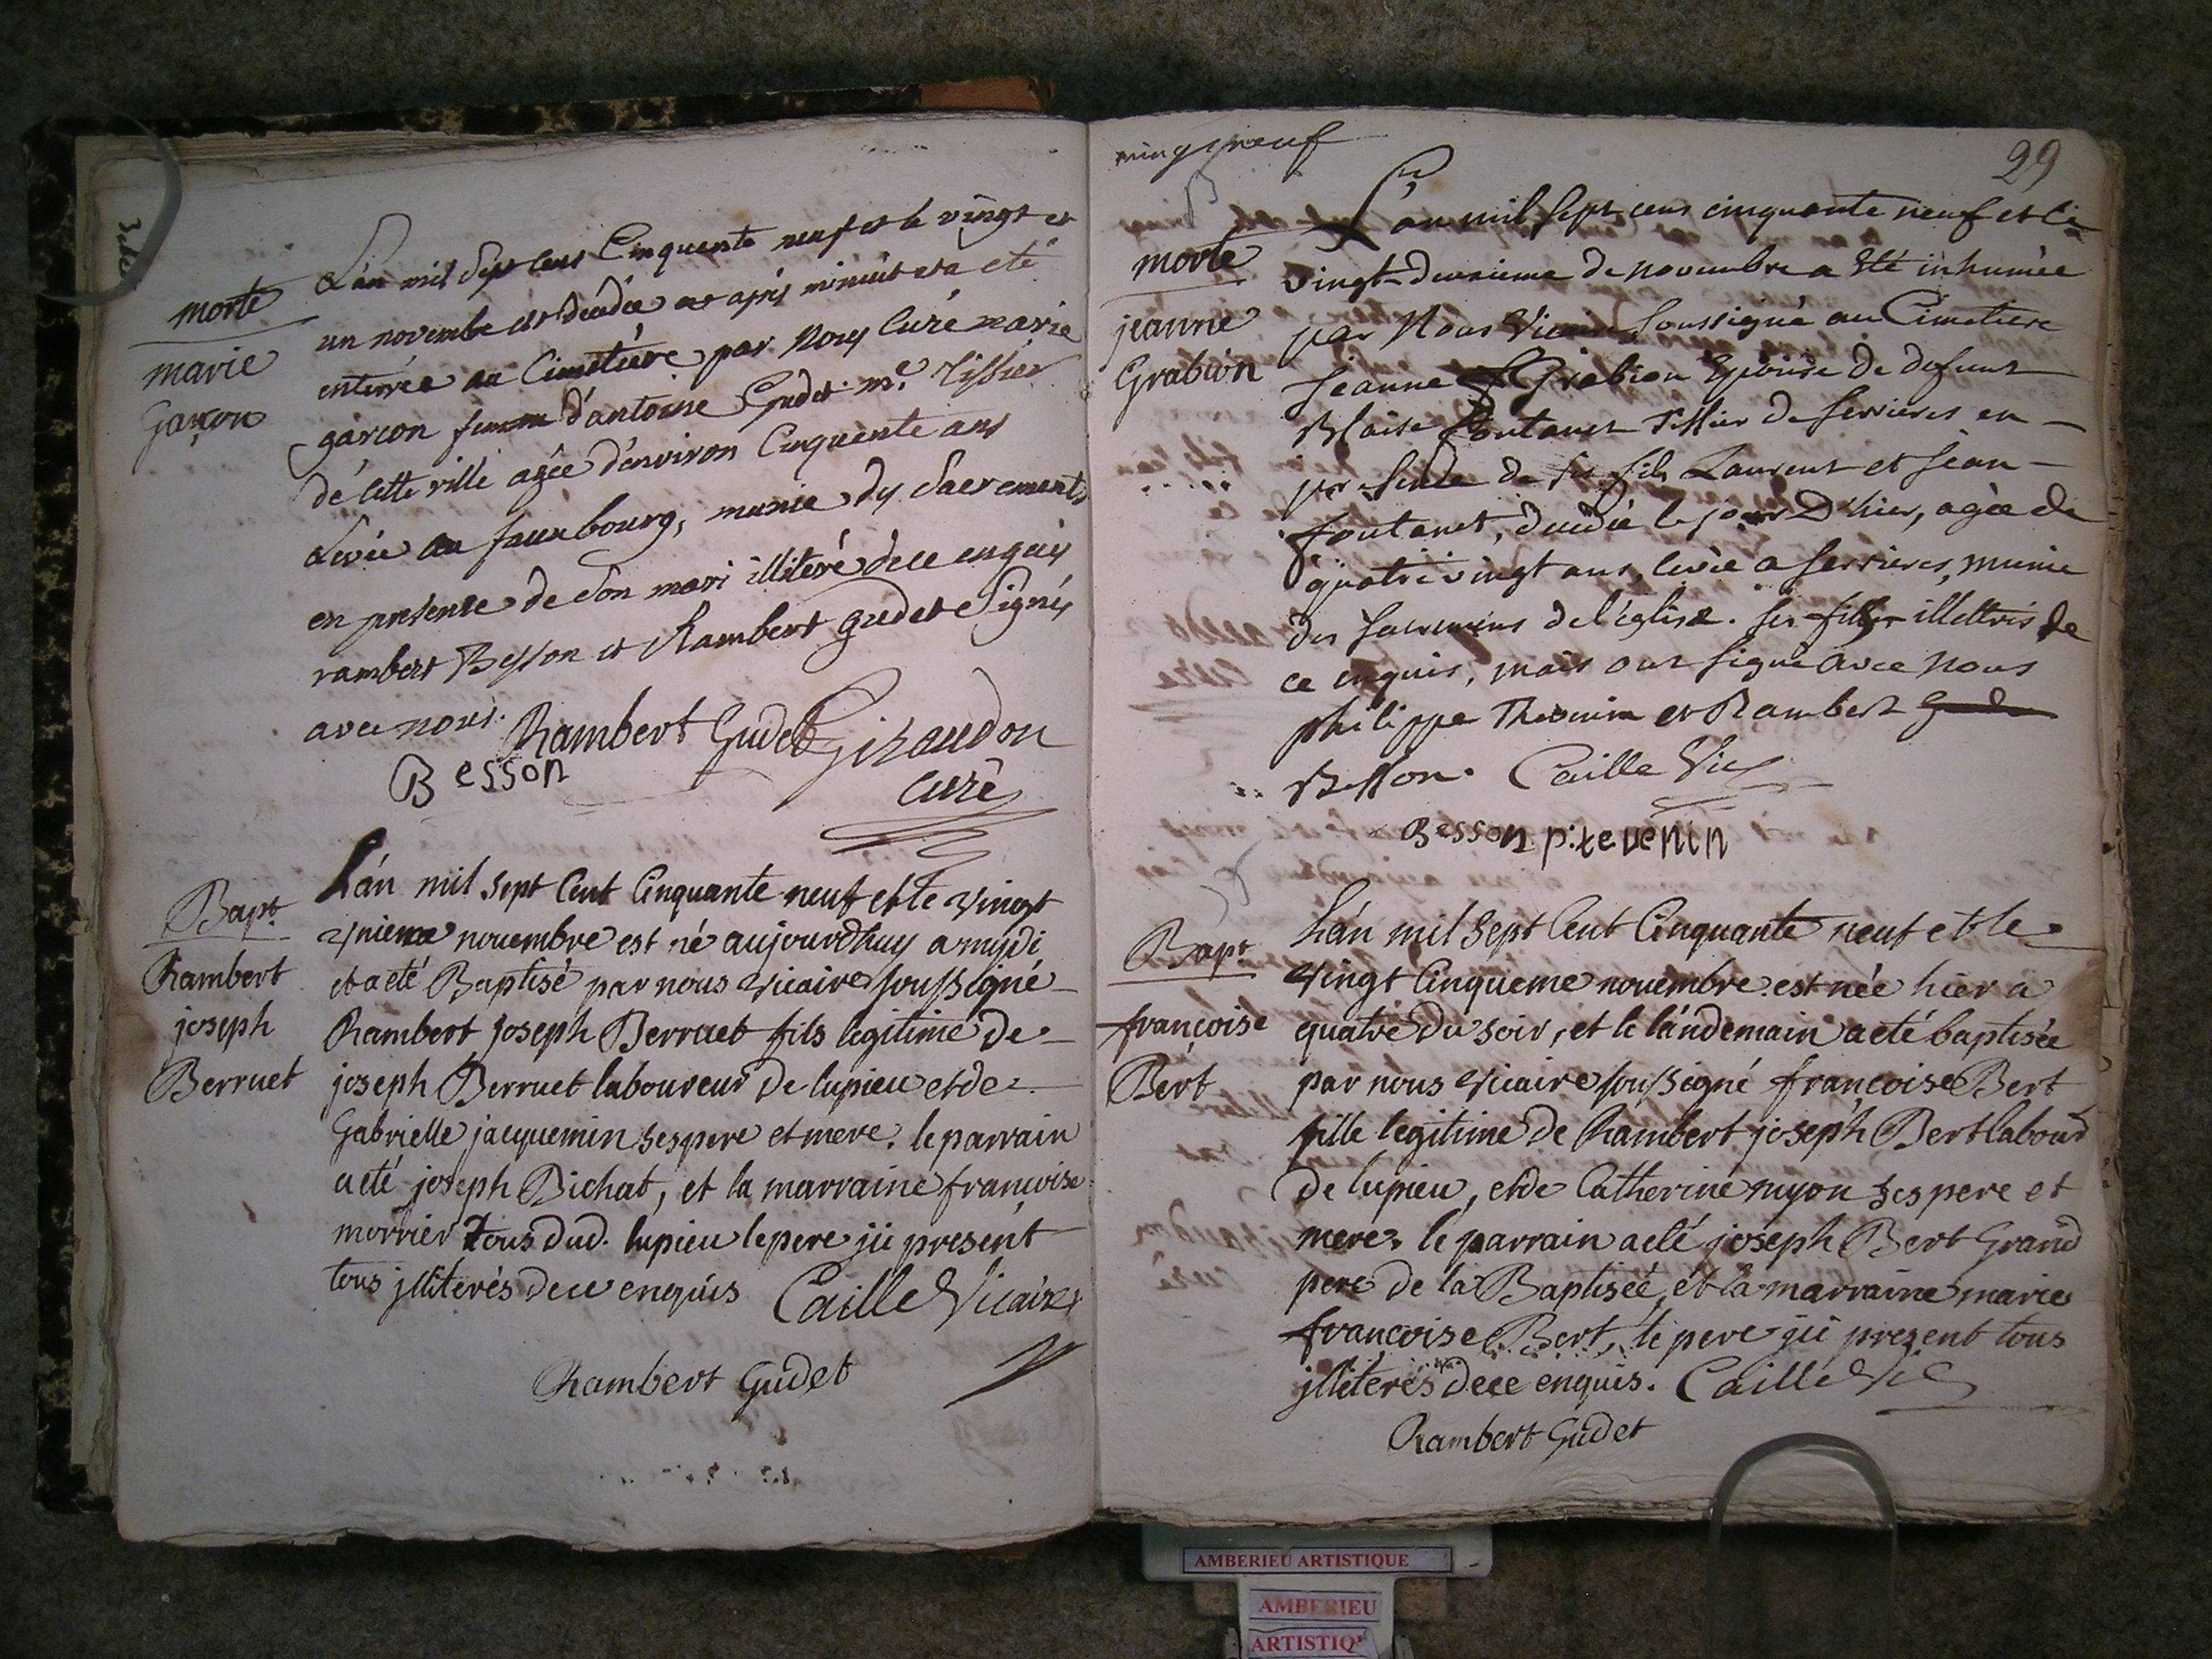 morte
marie
Garçon
L'an mil sept cens Cinquente neuf et le vingt et
un novembe est décédée et après minuit et a eté
enterrée au Cimetière par nous Curé marie
garçon femme d'antoine Gudet me. Tissier
de cette ville agée d'environ Cinquente ans
Levée au fauxbourg, munie dy Sacrements
en presence de son mari illiteré de ce enquis
rambert Besson et Rambert gudet Signés
avec nous.
Rambert Gudet Giraudon
Besson curé
Bapt.
Rambert
joseph
Berruet
L'án mil sept Cent Cinquante neuf et le vingt
uniema novembre est né aujourdhuy a mydi
et a eté Baptisé par nous vicaire soussigné
Rambert joseph Berruet fils legitime de
joseph Berruet laboureur de lupieu et de
Gabrielle jacquemin ses pere et mere. le parrain
a eté joseph Bichat, et la marraine françoise
morrier tous dud. lupieu le pere ji present
tous jlliterés de ce enquis Caille Vicaire
Rambert Gudet
vingt neuf
29
morte
jeanne
Grabion
L'an mil sept cens cinquante neuf et le
vingt-deuxieme de novembre a Eté inhumée
par Nous Vicaire soussigné au Cimetiere
Jeanne Grabion Epouse de defunt
Blaise fontanet Tissier de serrieres en
presence de ses fils Laurent et jean
fontanet, décédée le jour D'hier, agée de
quatre vingt ans, levée a serrieres, munie
des sacremens de l'église. ses fils illettrés de
ce enquis, mais ont signé avec nous
philippe Thevenin et Rambert
Besson. Caille Vic
Besson p: tevenin
Bapt
françoise
Bert
L'án mil sept Cent Cinquante neuf et le
vingt Cinqueme novembre est née hier a
quatre du soir, et le lándemain a eté baptisée
par nous vicaire soussigné françoise Bert
fille legitime de Rambert joseph Bert labour
de lupieu, et de Catherine nyon ses pere et
mere. le parrain a eté joseph Bert Grand
pere de la Baptiseé, et la marraine marie
françoise Bert, le pere jii prezent tous
jlliterés de ce enquis. Caille Vic
Rambert Gudet
AMBERIEU ARTISTIQUE
AMBERIEU
ARTISTIQ